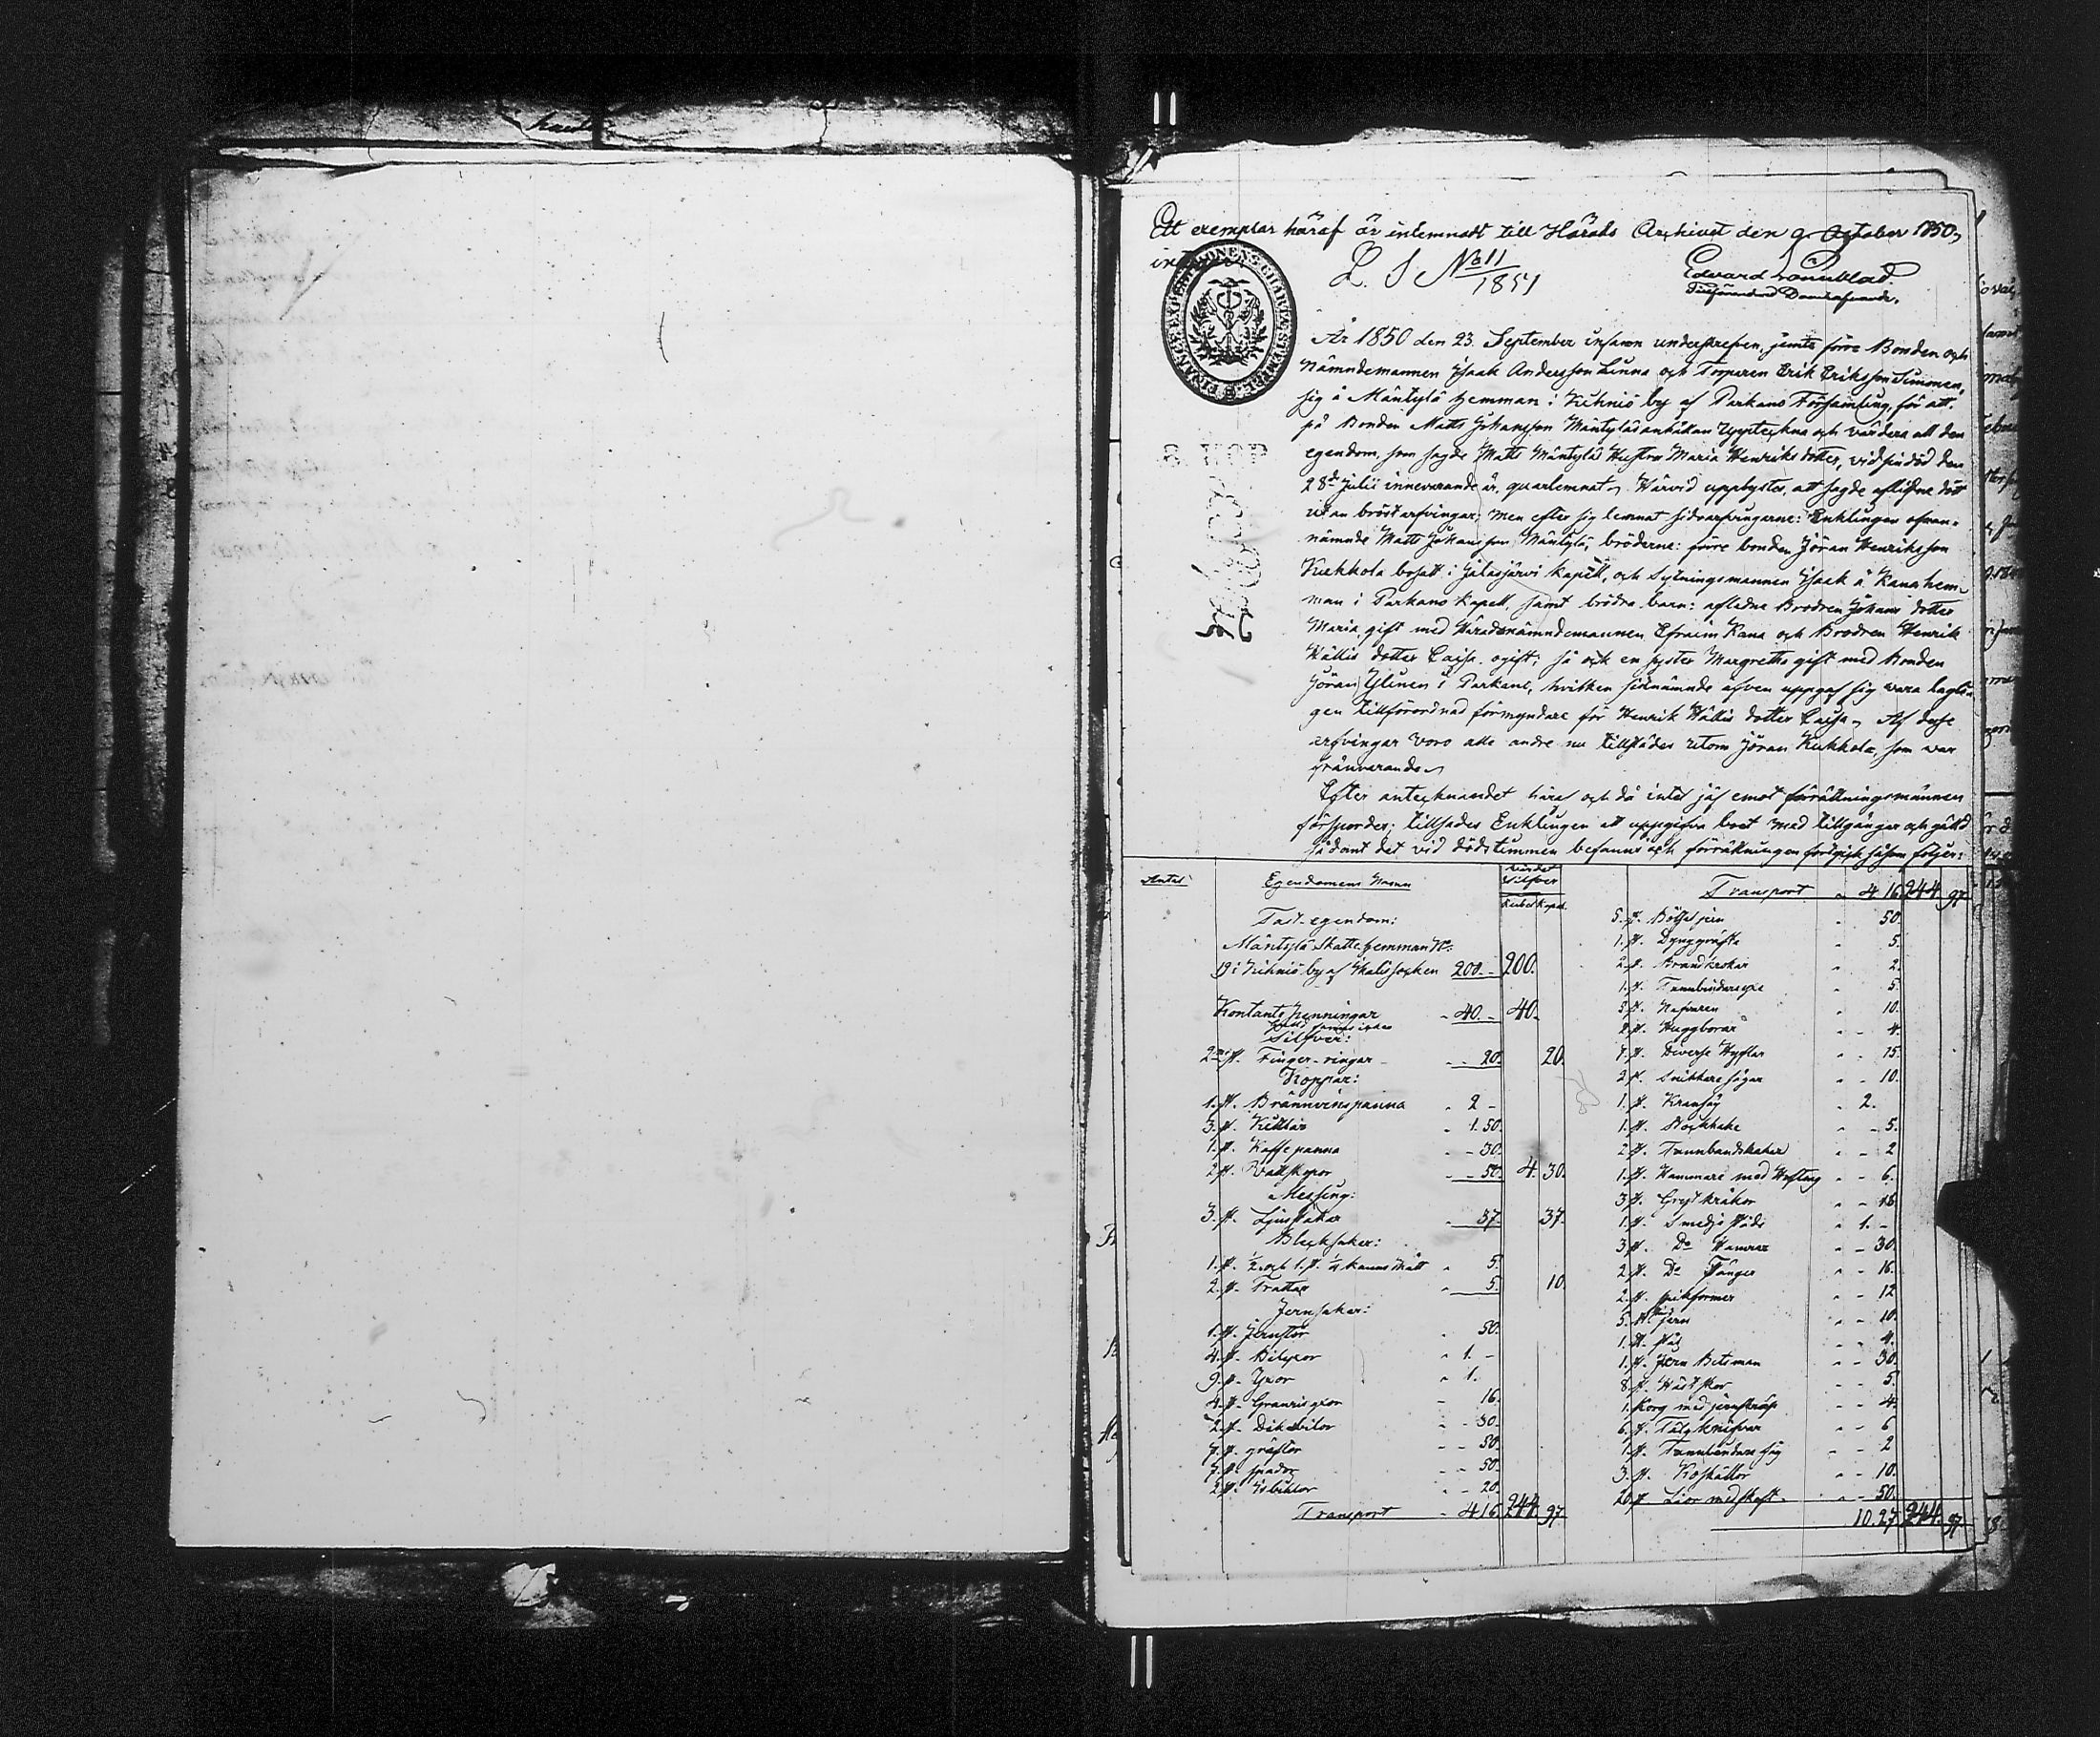 Ett exemplar häraf är inlemnadt till Härads Archivet den 9 October 1850,
L. S No 11
1851
Edvard Lönnblad.
Tillförordnad Domhafvande.
FINANCE EXPEDITIONENS CHARTÆ STEMPEL
År 1850 den 23 September infann underskrefven, jemte förre Bonden och
Nämndemannen Isaak Andersson Linna och Torparen Erik Eriksson Simonen,
sig å Mäntylä hemman i Kihniö by af Parkano Församling, för att
på Bonden Matts Johansson Mäntyläs anhållan uppteckna och värdera all den
egendom, som sagde Matts Mäntyläs Hustru Maria Henriksdotter, vid sin död den
28de Julii innevarande år, qvarlemnat. Härvid upplystes, at sagde aflidne dött
utan bröstarfvingar, men efter sig lemnat sidoarfvingarne: Enklingen ofvan-
nämnde Matts Johansson Mäntylä, bröderne: förre bonden Jöran Henriksson
Kukkola bosatt i Jalasjärvi Kapell, och Sytningsmannen Isaak å Kana hem-
man i Parkano Kapell, samt brödra barn: aflidna Brodren Johans dotter
Maria, gift med Häradsnämndemannen Efraim Kana och Brodren Henrik
Källis dotter Caisa ogift; så ock en syster Margretha gift med Bonden
Jöran Ylinen i Parkano, hvilken sidnämnde äfven uppgaf sig vara lagli-
gen tillförordnad förmyndare för Henrik Källis dotter Caisa. Af desse
arfvingar voro alle andre nu tillstädes utom Jöran Kukkola, som war
frånvarande.
Efter antecknandet häraf och då intet jäf emot förrättningsmännen
försporder, tillsades Enklingen att uppgifva boet med tillgångar och gäld
sådant det vid dödstimmen befanns och förrättningen fortgick såsom följer:
Antal Egendomens Namn Silfver
Rubel Kopek.
Fast egendom:
Mäntylä Skatte hemman No
19 i Kihniö by af Ikalis socken 200. - 200.
Kontante penningar - 40. - 40.
Silfver:
2 st. Finger-ringar - - 20. 20.
Koppar:
1. st. Brännvinspanna - 2 -
3. st. Kittlar - 1. 50.
1. st. Kaffe panna - - 30.
2 st. - - 50. 4. 30.
Messing:
3. st. Ljusstakar - 37. 37.
Blecksaker:
1. st. ½ och 1. st. ¼ kanns mått - 5.
2. st. Trattar - 5. 10.
Jernsaker:
1. st. Jernstör - 50.
4. st. - 1. -
9. st. Yxor - 1.
4. st. - 16.
2. st. - - 30.
7. st. gräftor - - 50.
7. st. spador - - 50.
2. st. Isbillar - - 20.
Transport - 4 16. 244. 97.
Transport - 4 16. 244. 97.
5. st. - 50.
1. st. Dynggräfta - 5.
2. st. Brandkrokar - 2.
1. st. Tunnbindareyxa - 5.
5 st. Nafvaren - 10.
2 st. Huggborar - - 4.
7. st. Diverse Hyflar - - 15.
2 st. Snikkare sågar - - 10.
1. st. Kransåg - 2.
1. st. Bockhake - - 5.
2 st. Tunnbandshakar - - 2
1. st. Hammare med Hoftång - - 6.
3 st. - 16
1. st. Smedje städ - 1. -
3 st. Do Hamrar - - 30.
2 st. Do Tänger - - 16.
2. st. spikformer - - 12
5. st. - - 10.
1. st. - - 4.
1. st. Jern Betsman - - 30.
8 st. Hästskor - - 5.
1. Korg med jernskrap - - 4.
6. st. Täljknifvar - - 6
1. st. Tunnbindare såg - - 2
3. st. Koskällor - - 10.
26 st. Liar med skaft - - 50.
10. 27. 244. 97.